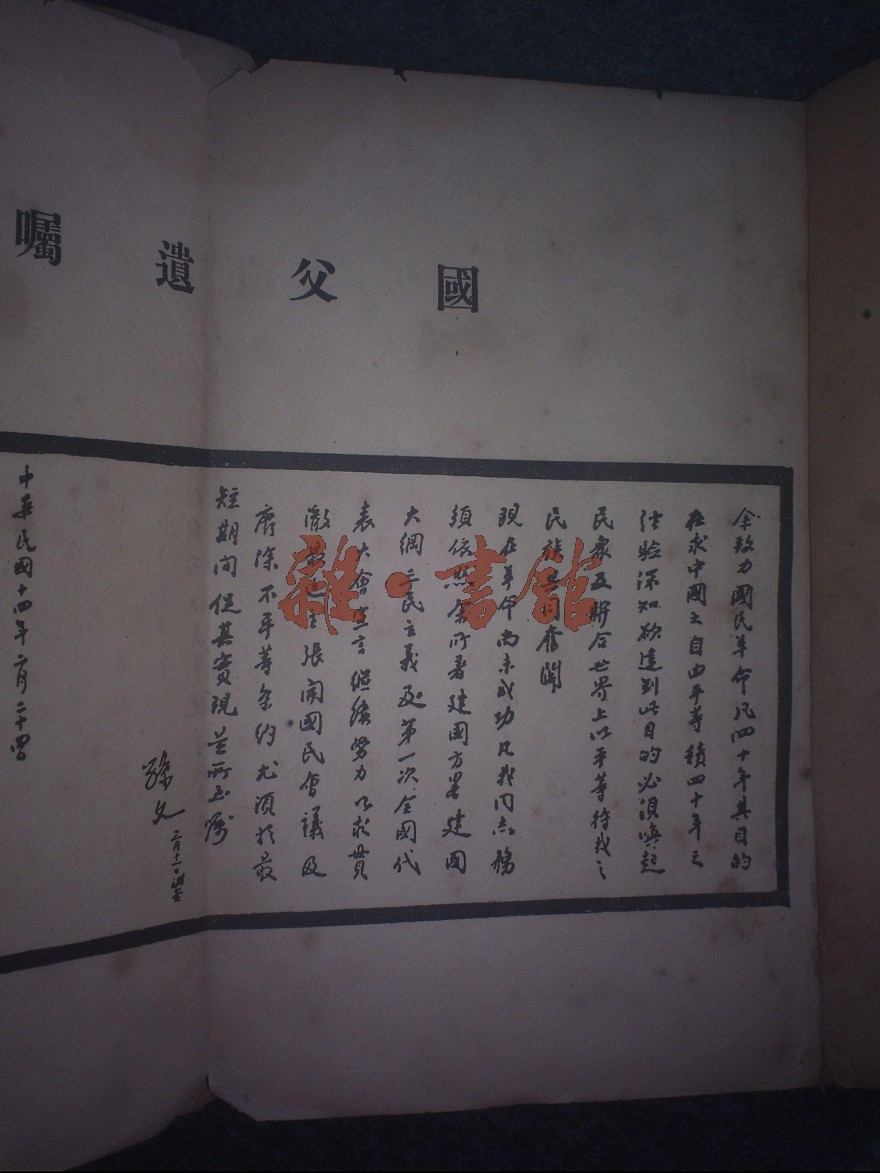 國父遺囑
余致力國民革命凡四十年其目的
在求中國之自由平等積四十年之
經驗深知欲達到此目的必須喚起
民眾及聯合世界上以平等待我之
民族共同奮鬥
現在革命尚未成功凡我同志務
須依照余所著建國方略建國
大綱三民主義及第一次全國代
表大會宣言繼續努力以求貫
澈最近主張開國民會議及
廢除不平等条約尤須於最
短期間促其實現是所至囑
孫文
三月十一日補簽
中華民國十四年二月二十四日
雜·書館